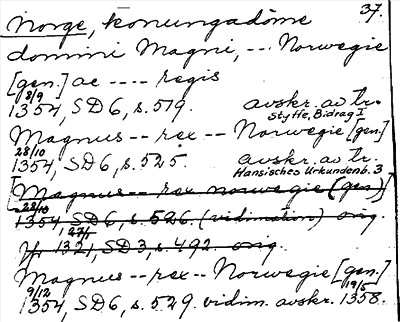 37.
Norge, konungadöme
domini Magni, -- Norwegie
[gen.] ac ---- regis
8/9
1354, SD6, s.519. avskr. av tr.
Styffe, Bidrag I
Magnus -- rex -- Norwegie [gen.]
28/10
1354, SD6, s.525. avskr. av tr.
Hansisches Urkundenb. 3
[Magnus -- rex norwegie (gen)]
28/10
1354, SD6, s.526. (vidimation) orig.
27/1
1321, SD3, s.492. orig.
Magnus -- rex -- Norwegie [gen.]
9/12 19/5
1354, SD6, s.529. vidim. avskr. 1358.